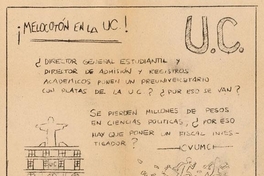 ¡MELOCOTÓN EN LA U.C.!
U.C.
¿DIRECTOR GENERAL ESTUDIANTIL Y
DIRECTOR DE ADMISIÓN Y REGISTROS
ACADÉMICOS PONEN UN PREUNIVERSITARIO
CON PLATAS DE LA U.C.? ¿POR ESO SE VAN?
SE PIERDEN MILLONES DE PESOS
EN CIENCIAS POLÍTICAS, ¿POR ESO
HAY QUE PONER UN FISCAL INVES-
TIGADOR?